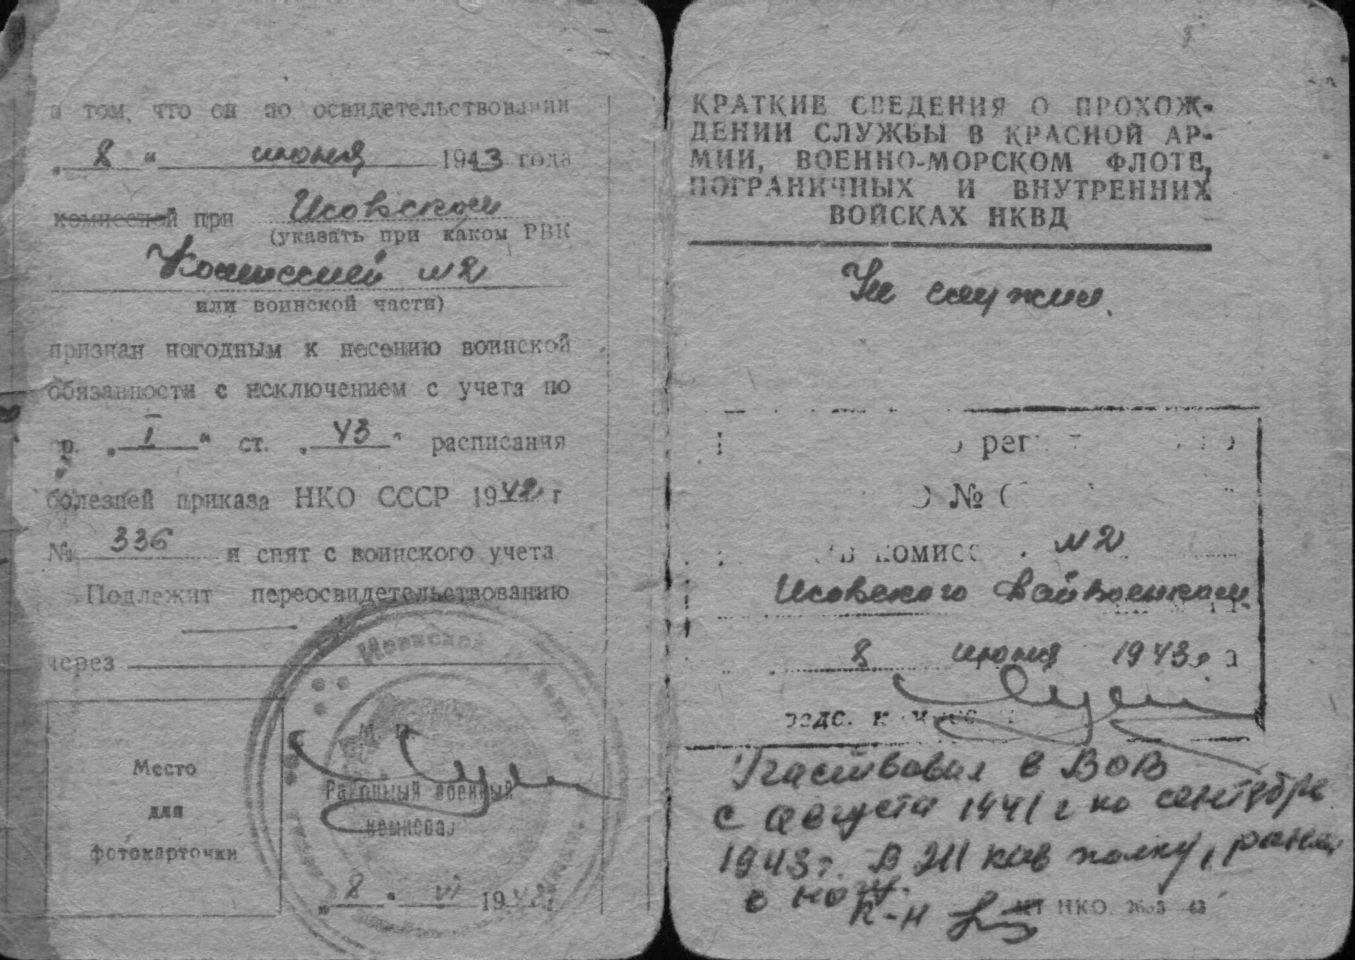 в том, что он по освидетельствовании
„ 8 “ июня 1943 года
комиссией при Исовском
(указать при каком РВК
Комиссией №2
или воинской части)
признан негодным к несению воинской
обязанности с исключением с учета по
гр. „ I “ ст. „ 43 “ расписания
болезней приказа НКО СССР 1942 г
№ 336 и снят с воинского учета
Подлежит переосвидетельствованию
через
Место
для
фотокарточки
М. П.
Районный военный
комиссар
„ 8 “ VI 19
КРАТКИЕ СВЕДЕНИЯ О ПРОХОЖ-
ДЕНИИ СЛУЖБЫ В КРАСНОЙ АР-
МИИ, ВОЕННО-МОРСКОМ ФЛОТЕ,
ПОГРАНИЧНЫХ И ВНУТРЕННИХ
ВОЙСКАХ НКВД
Не служил.
рег
№
комисс №2
Исовского Райвоенком
8 июня 1943г
Участвовал в ВОВ
с августа 1941 г по сентябрь
1943г. В кав полку, ранен
в ногу.
К-н
НКО